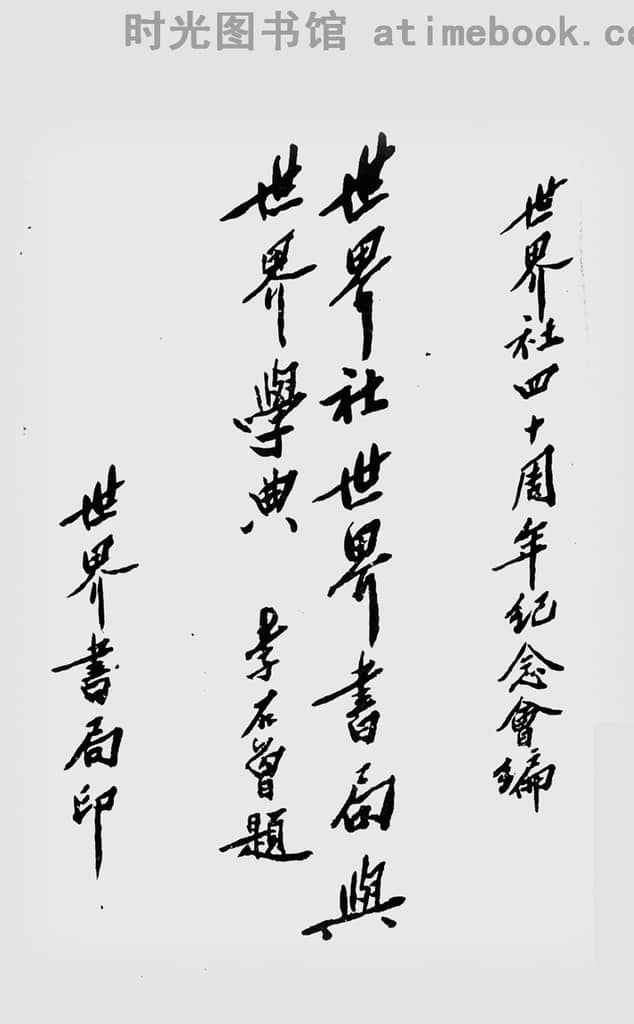 时光图书馆 atimebook.co
世界社四十周年纪念會编
世界社世界書局與
世界學典 李石曾題
世界書局印